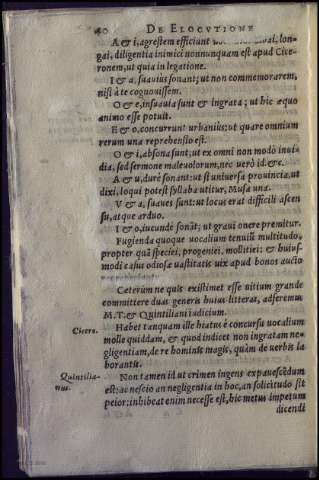 40 DE ELOCVTIONE
A & i, agrestem efficiunt
gal, diligentia inimici nonnunquam est apud Cice-
ronem, ut quia in legatione.
I & a, suauius sonant; ut non commemorarem,
nisi à te cognouissem.
O & e, insuauia sunt & ingrata; ut hic æquo
animo esse potuit.
E & o, concurrunt urbanius; ut quare omnium
rerum una reprehensio est.
O & i, absona sunt; ut ex omni non modò inui-
dia, sed sermone maleuolorum, nec uerò id. &c.
A & u, durè sonant: ut si uniuersa prouincia, ut
dixi, loqui potest syllaba utitur, Musa una.
V & a, suaues sunt: ut locus erat difficili ascen
su, atque arduo.
I & o, iucundè sonãt; ut graui onere premitur.
Fugienda quoque uocalium tenuiũ multitudo,
propter quã speciei, progeniei, mollitiei: & huius-
modi casus odiosa uastitatis uix apud bonos aucto
reperiuntur.
Ceterùm ne quis existimet esse uitium grande
committere duas generis huius litteras, adferemus
M.T. & Quintiliani iudicium.
Cicero. Habet tanquam ille hiatus è concursu uocalium
molle quiddam, & quod indicet non ingratam ne-
gligentiam, de re hominis magis, quàm de uerbis la
borantis.
Quintilia- Non tamen id ut crimen ingens expauescẽdum
nus. est: ac nescio an negligentia in hoc, an solicitudo sit
peior; inhibeat enim necesse est, hic metus impetum
dicendi